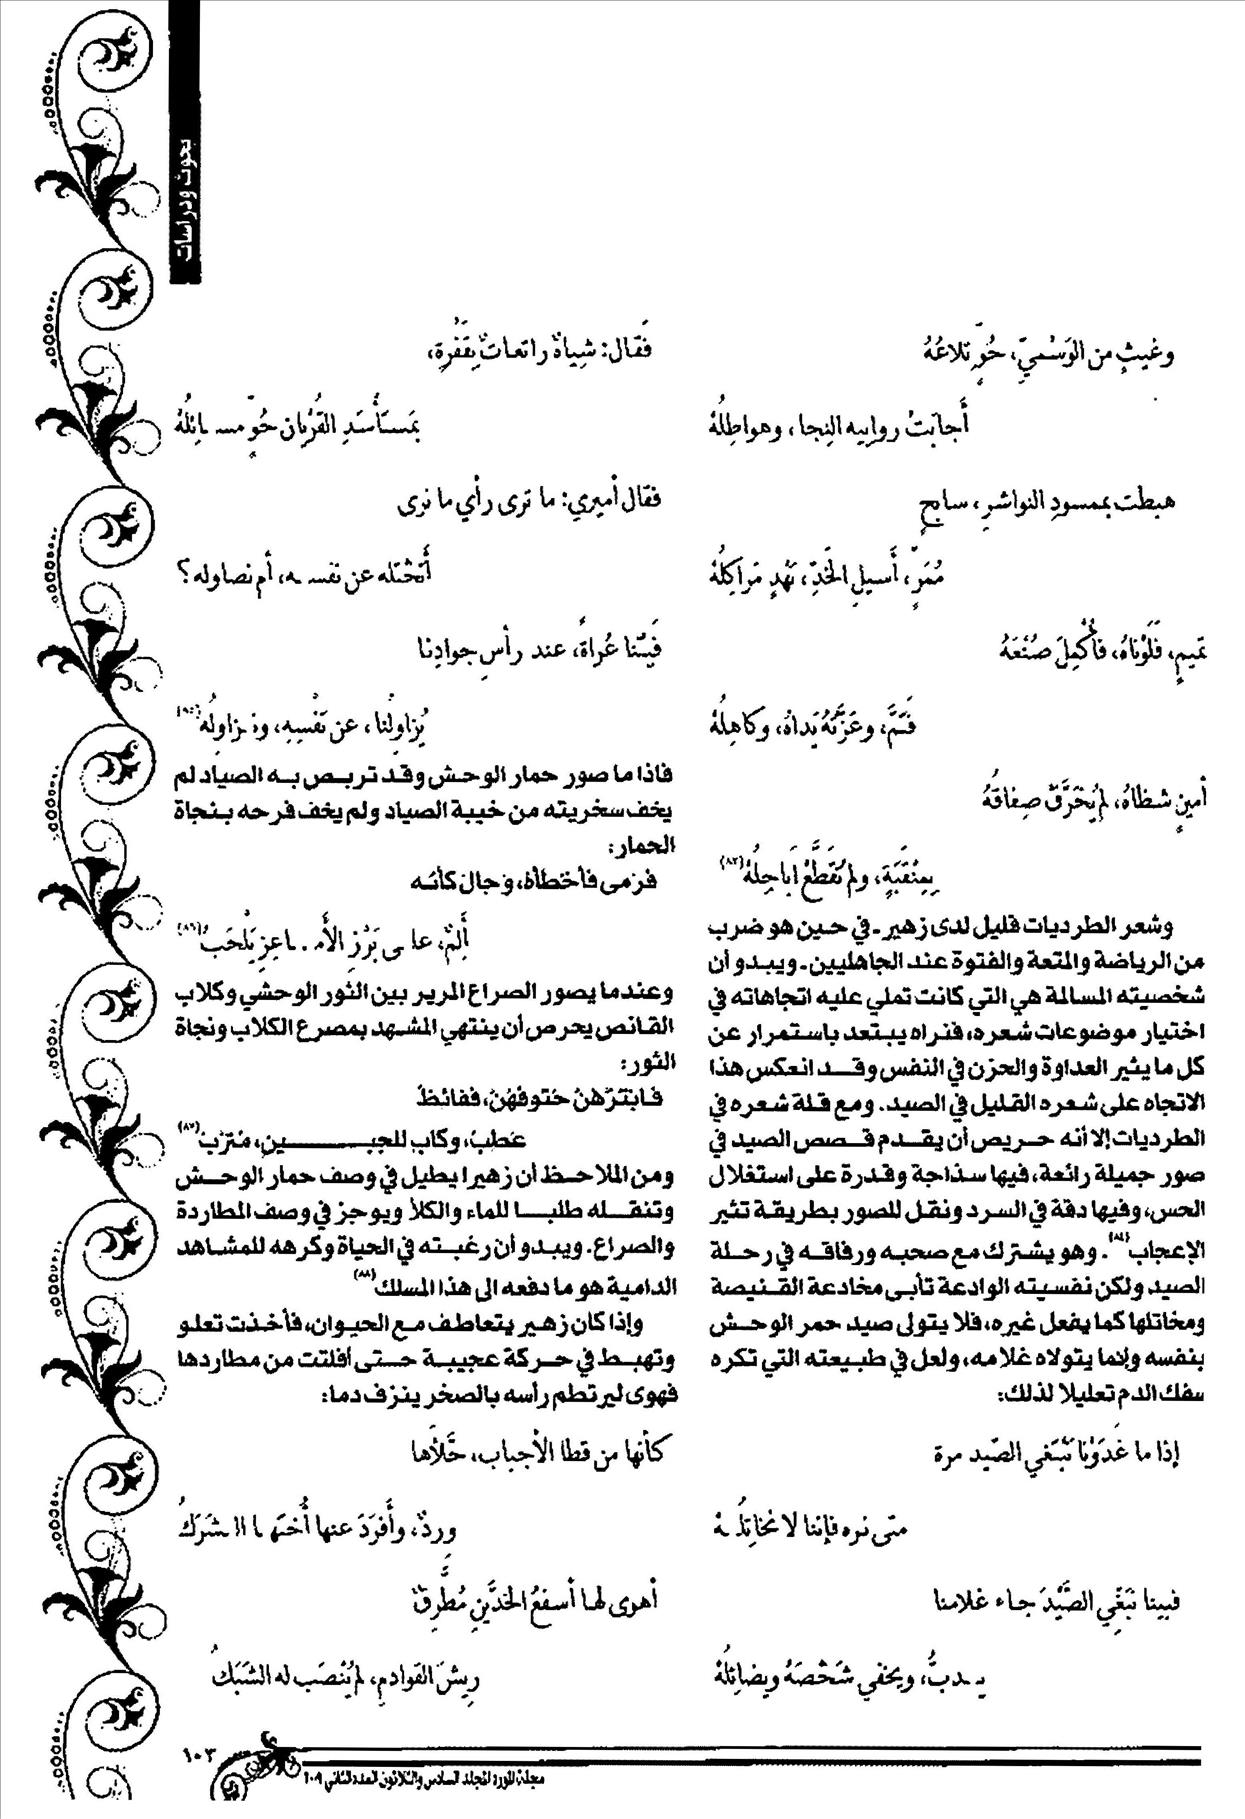 بحوث ودراسات
وغيثٍ من الوَسْميِّ، حُوٍّ تلاعُهُ
أَجابَتْ روابيه النِجا، وهواطِلُهْ
هبطت بممسودِ النواشرِ، سابحٍ
مُمَرٍّ، أَسيلِ الخَدِّ، نَهْدٍ مَراكِلُهْ
تميمٍ، فَلَوْناهُ، فأُكْمِلَ صُنْعَهُ
فَتَمَّ، وعَزَّتْهُ يَداهُ، وكاهِلُهْ
أمينٍ شظاهُ، لم يُخَرَّقْ صِفاقَهُ
بِمِنْقَبَةٍ، ولم تُقَطَّعْ أباجِلُهْ(٨٣)
وشعر الطرديات قليل لدى زهير ـ في حين هو ضرب
من الرياضة والمتعة والفتوة عند الجاهليين ـ ويبدو أن
شخصيته المسالمة هي التي كانت تملي عليه اتجاهاته في
اختيار موضوعات شعره، فنراه يبتعد باستمرار عن
كل ما يثير العداوة والحزن في النفس وقد انعكس هذا
الاتجاه على شعره القليل في الصيد. ومع قلة شعره في
الطرديات إلا أنه حريص أن يقدم قصص الصيد في
صور جميلة رائعة، فيها سذاجة وقدرة على استغلال
الحس، وفيها دقة في السرد ونقل للصور بطريقة تثير
الإعجاب(٨٤). وهو يشترك مع صحبه ورفاقه في رحلة
الصيد ولكن نفسيته الوادعة تأبى مخادعة القنيصة
ومخاتلها كما يفعل غيره، فلا يتولى صيد حمر الوحش
بنفسه وإنما يتولاه غلامه، ولعل في طبيعته التي تكره
سفك الدم تعليلا لذلك:
إذا ما غَدَوْنا نَبْتَغي الصّيد مرة
متى نره فإننا لا نخاتِلُهْ
فبينا نَبَغِّي الصَّيْدَ جاء غلامنا
يدبُّ، ويخفي شَخْصَهُ ويضائِلُهْ
فَقال: شِياهٌ راتعاتٌ بِقَفْرةٍ،
بمَستَأْسَدِ القُرْيان حُوٍّ مسائِلُهْ
فقال أميري: ما ترى رأي ما نرى
أَنَخْتله عن نفسه، أم نصاوله؟
فَبِتْنا عُراةً، عند رأسِ جوادِنا
يُزاوِلُنا، عن نَفْسِهِ، ونزاوِلُه(٨٥)
فاذا ما صور حمار الوحش وقد تربص به الصياد لم
يخف سخريته من خيبة الصياد ولم يخف فرحه بنجاة
الحمار:
فرَمى فأخطأهُ، وَجال كأنه
أَلِمٌ، على بَرْزِ الأَماعِزِ يَلْحَبُ(٨٦)
وعندما يصور الصراع المرير بين الثور الوحشي وكلاب
القانص يحرص أن ينتهي المشهد بمصرع الكلاب ونجاة
الثور:
فابتزّهنْ حُتوفَهُنْ، ففائظٌ
عَطِبٌ، وكابٍ للجبين، مُتَرّبُ(٨٧)
ومن الملاحظ أن زهيرا يطيل في وصف حمار الوحش
وتنقله طلبا للماء والكلأ ويوجز في وصف المطاردة
والصراع. ويبدو أن رغبته في الحياة وكرهه للمشاهد
الدامية هو ما دفعه الى هذا المسلك(٨٨)
وإذا كان زهير يتعاطف مع الحيوان، فأخذت تعلو
وتهبط في حركة عجيبة حتى أفلتت من مطاردها
فهوى ليرتطم رأسه بالصخر ينزف دما:
كأنها من قطا الأجباب، حَّلأها
وِردٌ، وأَفرَدَ عنها أُختَها الشَرَكُ
أهوى لها أسفعُ الخدَّينِ مُطَّرِقٌ
رِيشَ القوادمِ، لم يُنْصَب له الشَبَكُ
١٠٣
مجلة المورد المجلد السادس والثلاثون العدد الثاني ٢٠٠٩